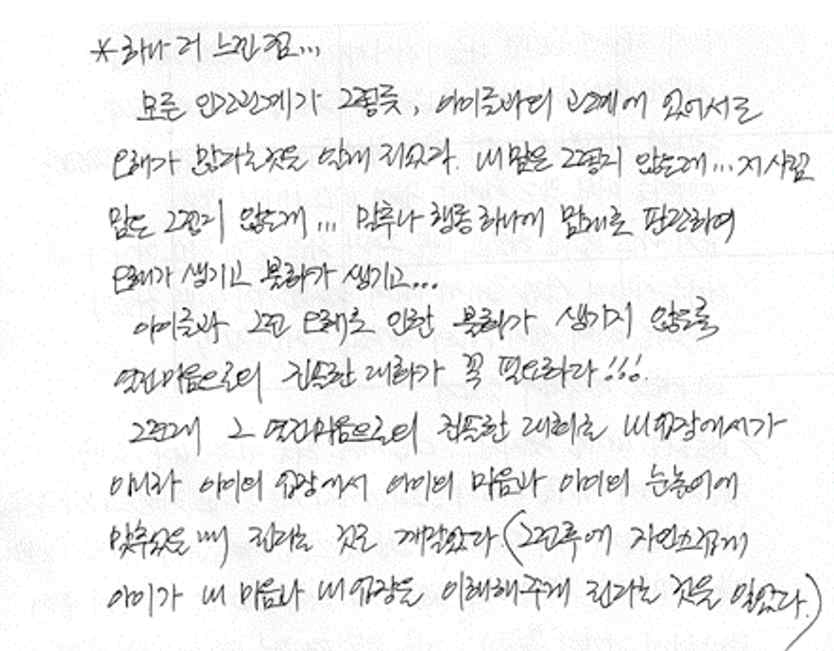 * 하나 더 느낀점...
모든 인간관계가 그렇듯, 아이들과의 관계에 있어서도
오해가 많다는것을 알게 되었다. 내맘은 그렇지 않은데... 저사람
맘은 그런지 않은데... 말투나 행동 하나에 맘대로 판단하여
오해가 생기고 불화가 생기고...
아이들과 그런 오해로 인한 불화가 생기지 않도록
열린마음으로의 진솔한 대화가 꼭 필요하다!!!
그런데 그 열린마음으로의 진솔한 대화는 내입장에서가
아니라 아이의 입장에서 아이의 마음과 아이의 눈높이에
맞추었을 때 된다는 것도 깨달았다 (그런후에 자연스럽게
아이가 내 마음과 내입장을 이해해주게 된다는 것을 알았다.)